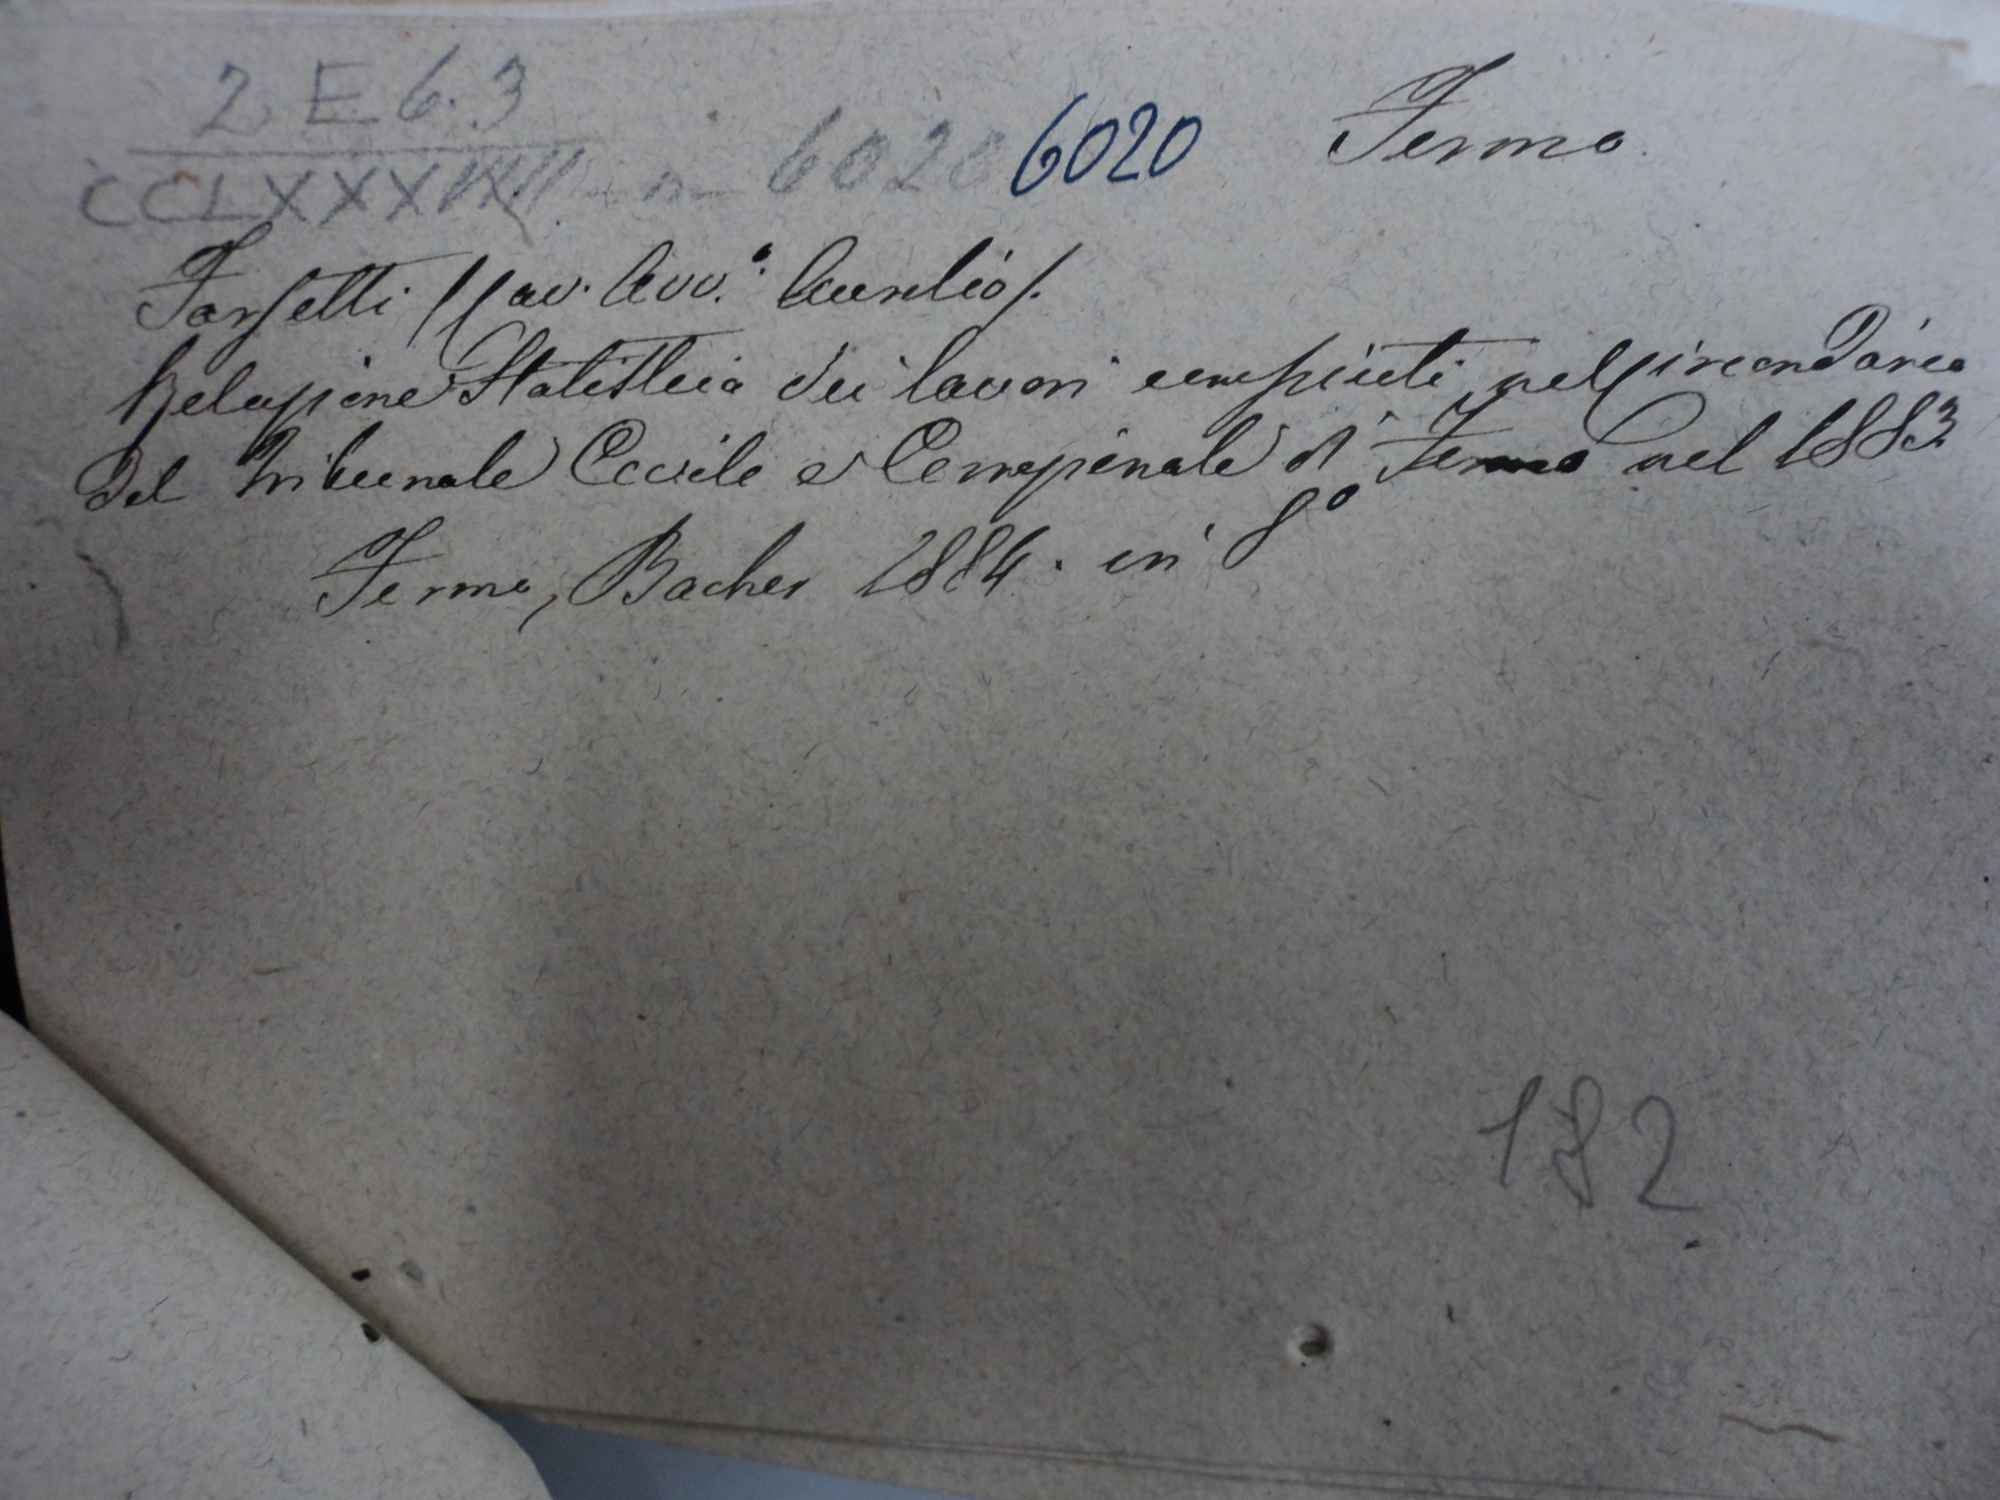 2 E 6.3
CCLXXX n 6020 6020 Fermo
Farsetti (Cav. Avv.º Aurelio).
Relazione Statistica dei lavori compiuti nel Circondario
del Tribunale Civile e Correzionale di Fermo nel 1883
Fermo, Bacher 1884. in 8º
182